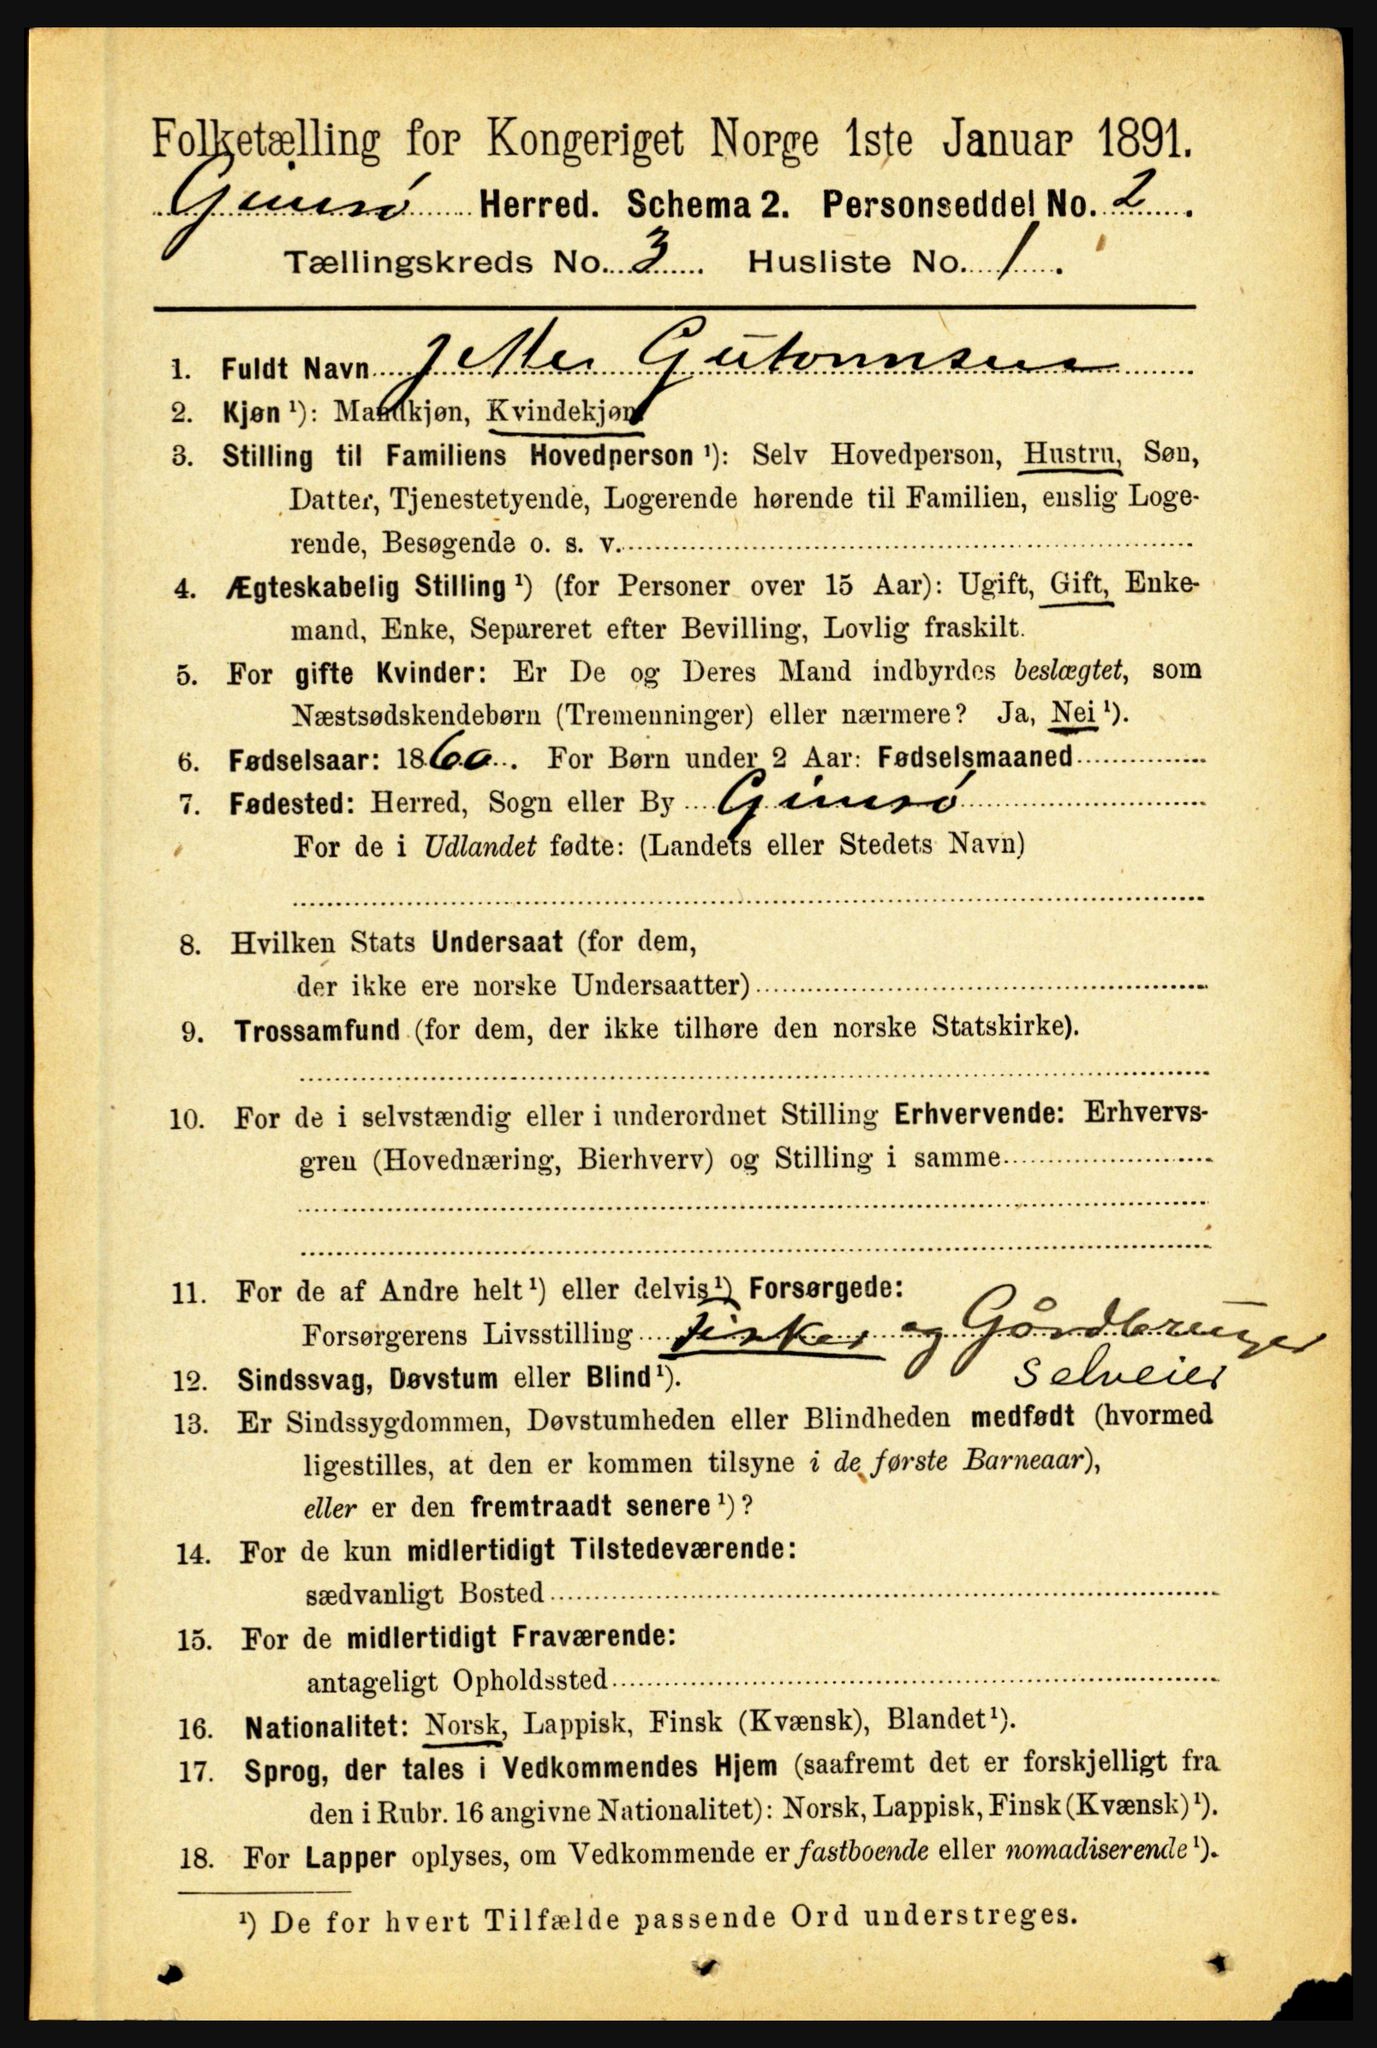 Folketælling for Kongeriget Norge 1ste Januar 1891.
Gimsø Herred. Schema 2. Personseddel No. 2.
Tællingskreds No. 3. Husliste No. 1.
1. Fuldt Navn
2. Kjøn¹): Mandkjøn, Kvindekjøn
3. Stilling til Familiens Hovedperson¹): Selv Hovedperson, Hustru, Søn,
Datter, Tjenestetyende, Logerende hørende til Familien, enslig Loge-
rende, Besøgende o. s. v.
4. Ægteskabelig Stilling¹) (for Personer over 15 Aar): Ugift, Gift, Enke-
mand, Enke, Separeret efter Bevilling, Lovlig fraskilt.
5. For gifte Kvinder: Er De og Deres Mand indbyrdes beslægtet, som
Næstsødskendebørn (Tremenninger) eller nærmere? Ja, Nei¹).
6. Fødselsaar: 1860. For Børn under 2 Aar: Fødselsmaaned
7. Fødested: Herred, Sogn eller By Gimsø
For de i Udlandet fødte: (Landets eller Stedets Navn)
8. Hvilken Stats Undersaat (for dem,
der ikke ere norske Undersaatter)
9. Trossamfund (for dem, der ikke tilhøre den norske Statskirke).
10. For de i selvstændig eller i underordnet Stilling Erhvervende: Erhvervs-
gren (Hovednæring, Bierhverv) og Stilling i samme
11. For de af Andre helt¹) eller delvis¹) Forsørgede:
Forsørgerens Livsstilling fisker og Gårdbruger
selveier
12. Sindssvag, Døvstum eller Blind¹).
13. Er Sindssygdommen, Døvstumheden eller Blindheden medfødt (hvormed
ligestilles, at den er kommen tilsyne i de første Barneaar),
eller er den fremtraadt senere¹)?
14. For de kun midlertidigt Tilstedeværende:
sædvanligt Bosted
15. For de midlertidigt Fraværende:
antageligt Opholdssted
16. Nationalitet: Norsk, Lappisk, Finsk (Kvænsk), Blandet¹).
17. Sprog, der tales i Vedkommendes Hjem (saafremt det er forskjelligt fra
den i Rubr. 16 angivne Nationalitet): Norsk, Lappisk, Finsk (Kvænsk)¹).
18. For Lapper oplyses, om Vedkommende er fastboende eller nomadiserende¹).
¹) De for hvert Tilfælde passende Ord understreges.